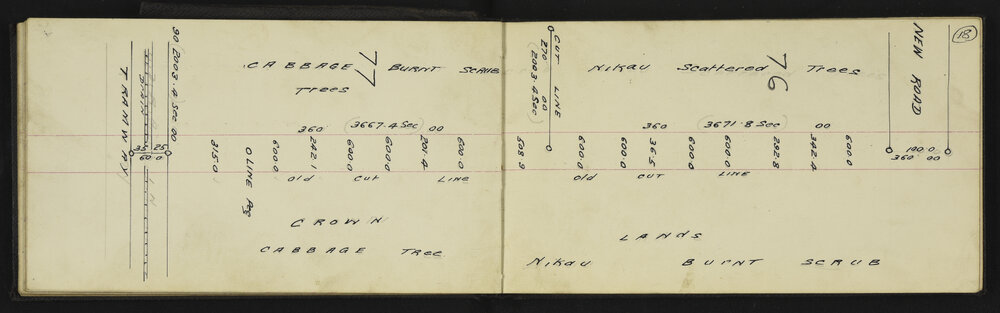 18
90 2003.4 Sec 00
TRAMWAY
35 25
60.0
CABBAGE BURNT SCRUB
Trees
77
360 (3667.4 Sec) 00
315.0
O LINE Peg
600.0
242.1
600.0
600.0
201.4
600.0
old CUT LINE
CROWN
CABBAGE TREE
CUT LINE
270 00
(2003.4 Sec)
Nikau Scattered Trees
76
360 (3671.8 Sec) 00
508.9
600.0
600.0
36.5
600.0
600.0
292.8
342.4
600.0
old CUT LINE
LANDS
Nikau BURNT SCRUB
NEW ROAD
100.0
360 00